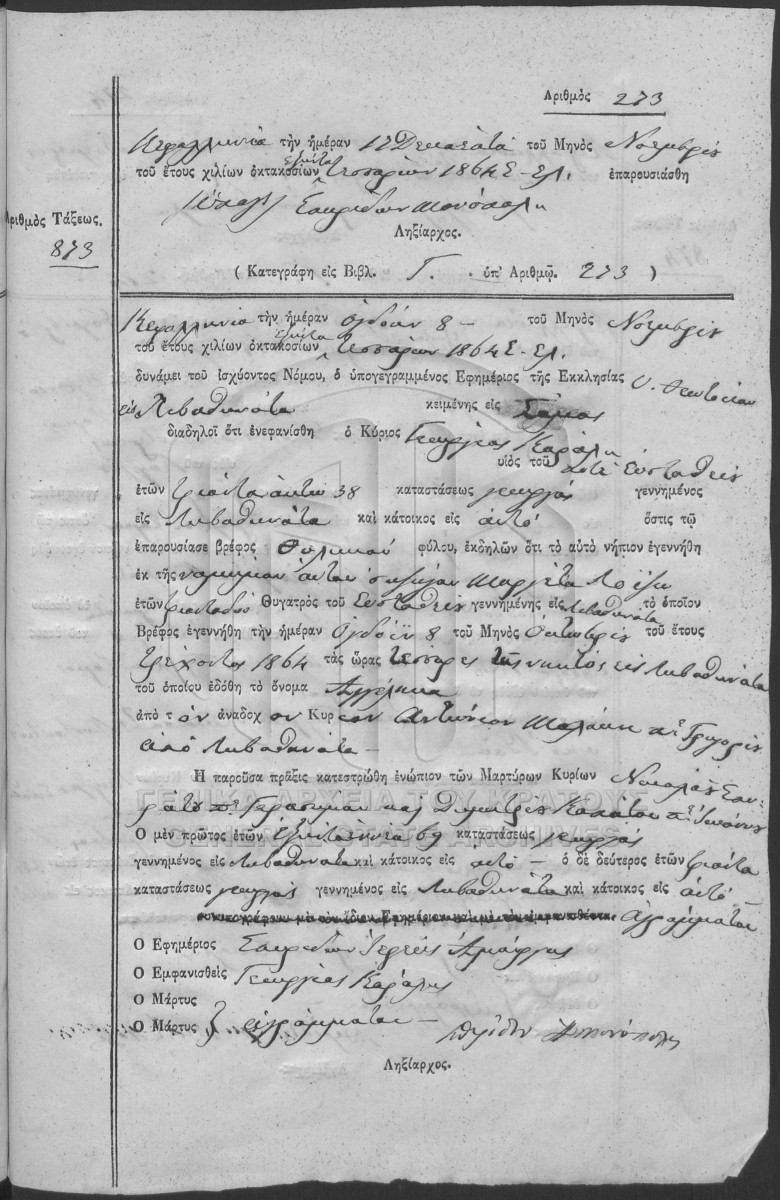 Ἀριθμὸς 273
Κεφαλληνία τὴν ἡμέραν 17 Δεκαεπτὰ τοῦ Μηνὸς Νοεμβρίου
τοῦ ἔτους χιλίων ὀκτακοσίων ἑξῆντα τεσσάρων 1864 Ε. Ελ. ἐπαρουσιάσθη
Σπυρίδων
Ληξίαρχος.
Ἀριθμὸς Τάξεως.
873
( Κατεγράφη εἰς Βιβλ. Γ. ὑπ' Ἀριθμῷ. 273 )
Κεφαλληνία τὴν ἡμέραν ὀγδόην 8 — τοῦ Μηνὸς Νοεμβρίου
τοῦ ἔτους χιλίων ὀκτακοσίων ἑξῆντα τεσσάρων 1864 Ε. Ελ.
δυνάμει τοῦ ἰσχύοντος Νόμου, ὁ ὑπογεγραμμένος Ἐφημέριος τῆς Ἐκκλησίας Υ. Θεοτόκου
εἰς Λυβαθινάτα κειμένης εἰς Σάμος
διαδηλοῖ ὅτι ἐνεφανίσθη ὁ Κύριος Γεώργιος Καράλης
υἱὸς τοῦ ποτὲ Εὐσταθίου
ἐτῶν τριάντα ὀκτὼ 38 καταστάσεως γεωργός γεννημένος
εἰς Λυβαθινάτα καὶ κάτοικος εἰς αὐτό ὅστις τῷ
ἐπαρουσίασε βρέφος θηλυκοῦ φύλου, ἐκδηλῶν ὅτι τὸ αὐτὸ νήπιον ἐγεννήθη
ἐκ τῆς νομίμου αὐτοῦ συζύγου Μαριέτα
ἐτῶν Θυγατρὸς τοῦ Εὐσταθίου γεννημένης εἰς Λυβαθινάτα τὸ ὁποῖον
Βρέφος ἐγεννήθη τὴν ἡμέραν ὀγδόην 8 τοῦ Μηνὸς Ὀκτωβρίου τοῦ ἔτους
τρέχοντος 1864 τὰς ὥρας τέσσαρες τῆς νυκτὸς εἰς Λυβαθινάτα
τοῦ ὁποίου ἐδόθη τὸ ὄνομα Ἀγγέλικα
ἀπὸ τὸν ἀναδοχον Κυριον Ἀντώνιον π. Γρηγορίου
ἀπὸ Λυβαθινάτα —
Ἡ παροῦσα πρᾶξις κατεστρώθη ἐνώπιον τῶν Μαρτύρων Κυρίων Νικολάου
π. Γερασίμου καὶ Δημητρίου π. Ἰωάννου
Ὁ μὲν πρῶτος ἐτῶν ἑξῆντα ἐννέα 69 καταστάσεως γεωργός
γεννημένος εἰς Λυβαθινάτα καὶ κάτοικος εἰς αὐτό — ὁ δὲ δεύτερος ἐτῶν τριάντα
καταστάσεως γεωργός γεννημένος εἰς Λυβαθινάτα καὶ κάτοικος εἰς αὐτό —
ἀγράμματοι
Ὁ Ἐφημέριος Σπυρίδων Ἱερεύς
Ὁ Ἐμφανισθεὶς Γεώργιος Καράλης
Ὁ Μάρτυς
Ὁ Μάρτυς ἀγράμματοι —
Ληξίαρχος.
ΓΕΝΙΚΑ ΑΡΧΕΙΑ ΤΟΥ ΚΡΑΤΟΥΣ
GENERAL STATE ARCHIVES